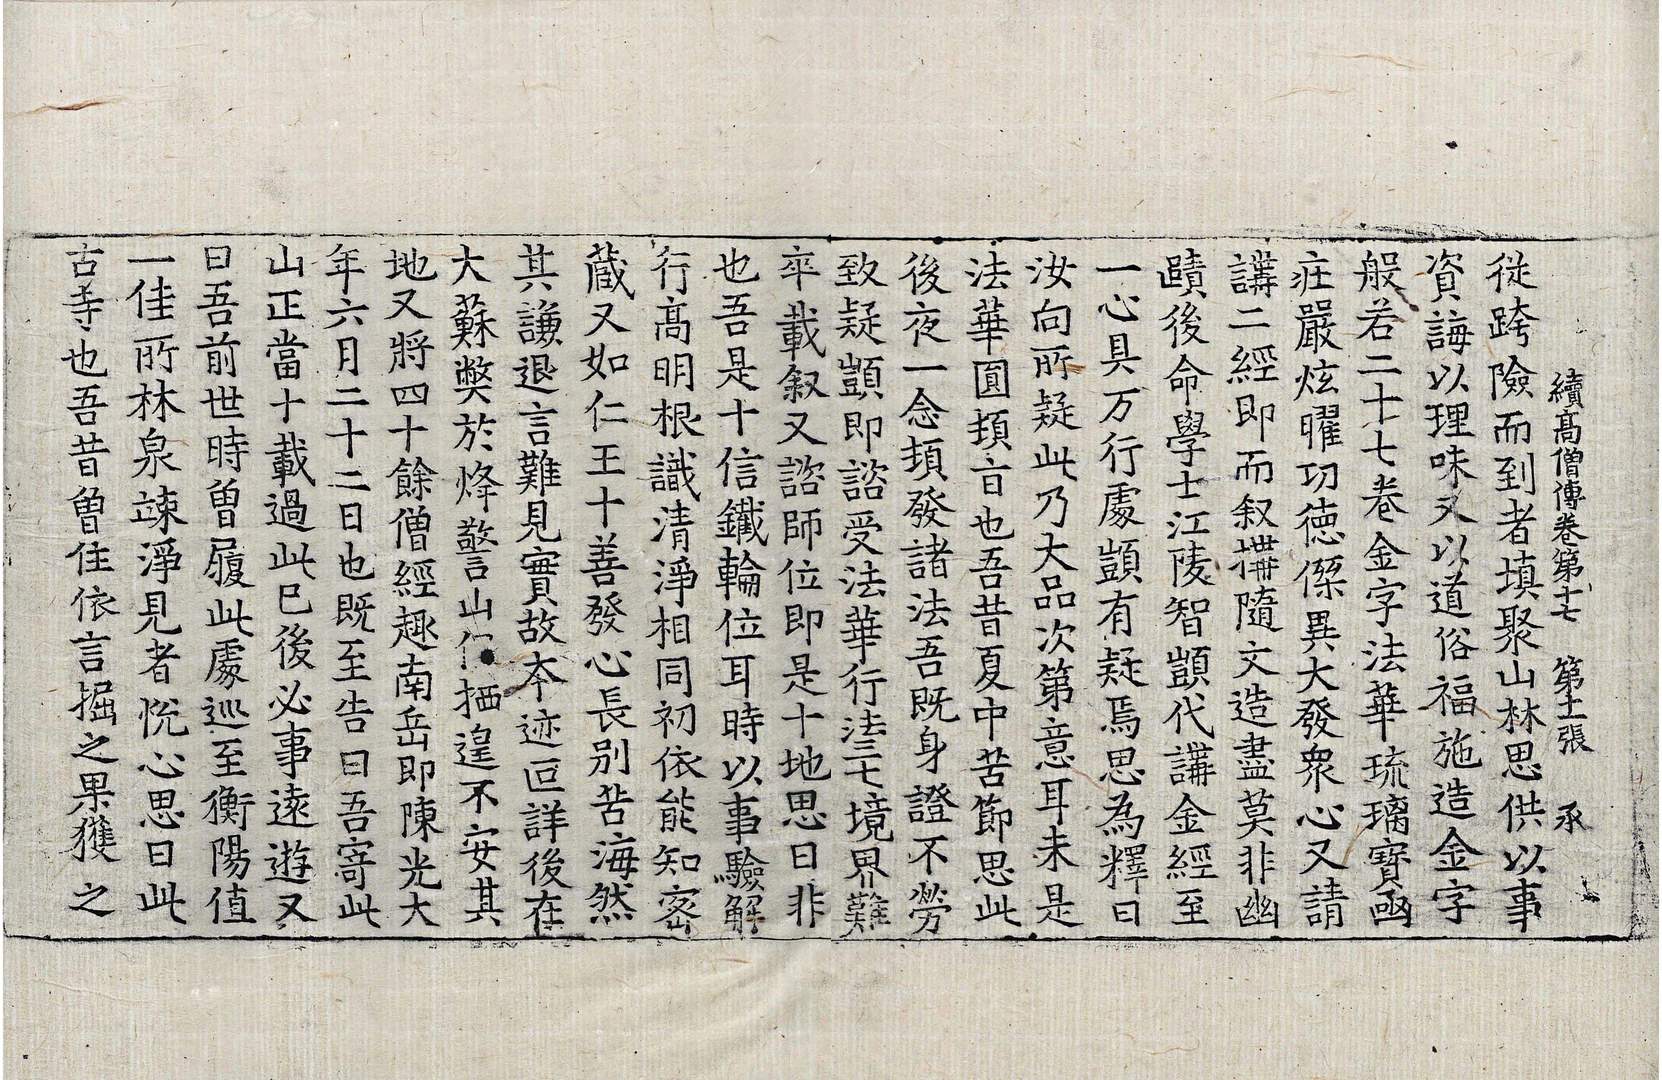 續高僧傳卷第十七 第十二張 承
從跨險而到者填聚山林思供以事
資誨以理味又以道俗福施造金字
般若二十七卷金字法華琉璃寶函
疘嚴炫曜功徳傑異大發衆心又請
講二經即而叙搆隨文造盡莫非幽
賾後命學士江陵智顗代講金經至
一心具万行處顗有疑焉思為釋曰
汝向所疑此乃大品次第意耳未是
法華圓頓㫖也吾昔夏中苦節思此
後夜一念頓發諸法吾既身證不勞
致疑顗即諮受法華行法三七境界難
卒載叙又諮師位即是十地思曰非
也吾是十信鐵輪位耳時以事驗解
行高明根識清淨相同初依能知密
蔵又如仁王十善發心長別苦海然
其謙退言難見實故夲迹叵詳後在
大蘇獘於烽警山 栖遑不安其
地又將四十餘僧經趣南岳即陳光大
年六月二十二日也既至告曰吾寄此
山正當十載過此已後必事遠遊又
曰吾前世時曽履此處巡至衡陽值
一佳所林泉竦淨見者恱心思曰此
古寺也吾昔曽住依言掘之果獲之